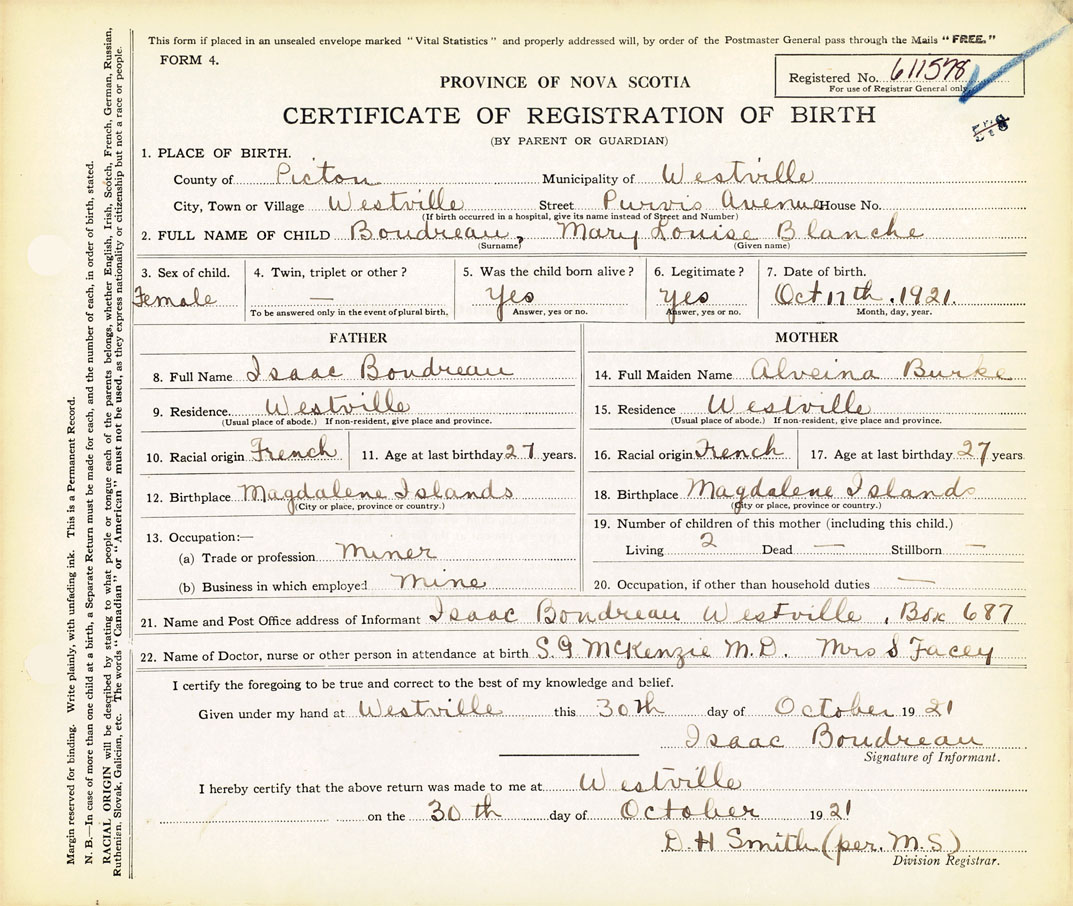 This form if placed in an unsealed envelope marked "Vital Statistics" and properly addressed will, by order of the Postmaster General pass through the Mails "FREE."
FORM 4.
Registered No. 611578
For use of Registrar General only
PROVINCE OF NOVA SCOTIA
CERTIFICATE OF REGISTRATION OF BIRTH
(BY PARENT OR GUARDIAN)
1. PLACE OF BIRTH.
County of Picton Municipality of Westville
City, Town or Village Westville Street Purvis Avenue House No.
(If birth occurred in a hospital, give its name instead of Street and Number)
2. FULL NAME OF CHILD Boudreau, Mary Louise Blanche
(Surname) (Given name)
3. Sex of child. 4. Twin, triplet or other? 5. Was the child born alive? 6. Legitimate? 7. Date of birth.
Female — Yes Yes Oct 17th, 1921.
To be answered only in the event of plural birth, Answer, yes or no. Answer, yes or no. Month, day, year.
FATHER
8. Full Name Isaac Boudreau
9. Residence. Westville
(Usual place of abode.) If non-resident, give place and province.
10. Racial origin French 11. Age at last birthday 27 years.
12. Birthplace Magdalene Islands
(City or place, province or country.)
13. Occupation:—
(a) Trade or profession Miner
(b) Business in which employed Mine
MOTHER
14. Full Maiden Name Alveina Burke
15. Residence Westville
(Usual place of abode.) If non-resident, give place and province.
16. Racial origin French 17. Age at last birthday 27 years
18. Birthplace Magdalene Islands
(City or place, province or country.)
19. Number of children of this mother (including this child.)
Living 2 Dead — Stillborn —
20. Occupation, if other than household duties —
21. Name and Post Office address of Informant Isaac Boudreau Westville, Box 687
22. Name of Doctor, nurse or other person in attendance at birth S.G McKenzie M.D. Mrs S Facey
I certify the foregoing to be true and correct to the best of my knowledge and belief.
Given under my hand at Westville this 30th day of October 1921
Isaac Boudreau
Signature of Informant.
I hereby certify that the above return was made to me at Westville
on the 30th day of October 1921
D. H Smith (per. M.S)
Division Registrar.
Margin reserved for binding. Write plainly, with unfading ink. This is a Permanent Record.
N. B.—In case of more than one child at a birth, a Separate Return must be made for each, and the number of each, in order of birth, stated.
RACIAL ORIGIN will be described by stating to what people or tongue each of the parents belongs, whether English, Irish, Scotch, French, German, Russian,
Ruthenian, Slovak, Galician, etc. The words "Canadian" or "American" must not be used, as they express nationality or citizenship but not a race or people.